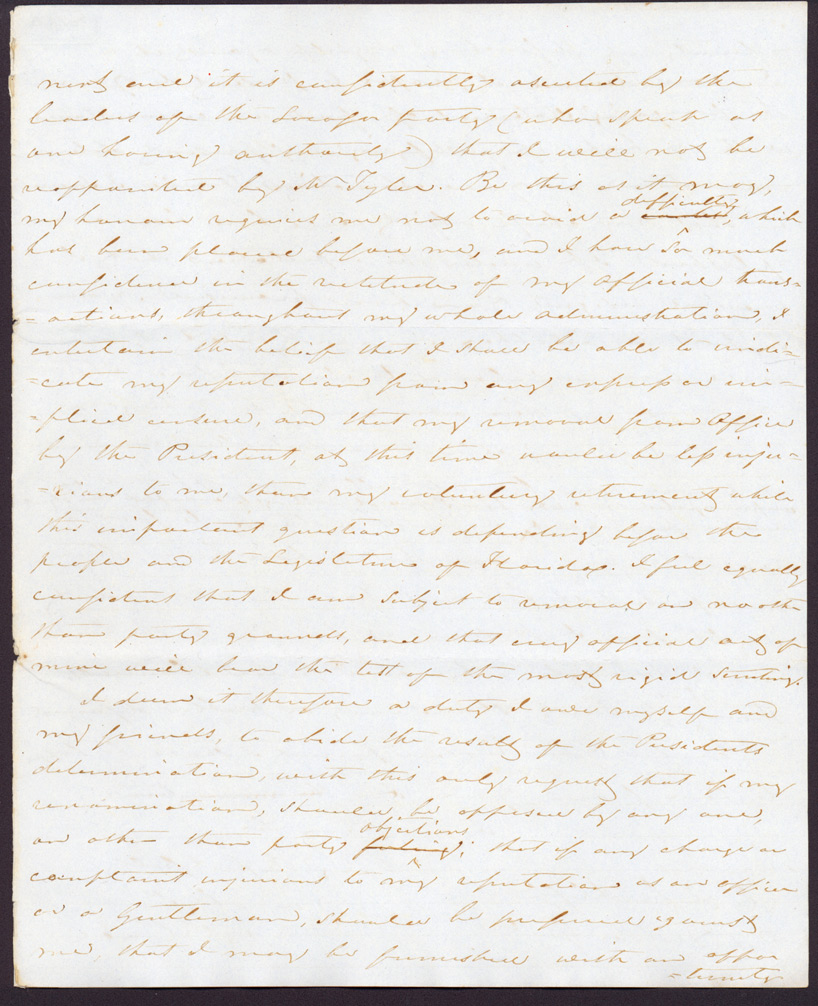 next and it is confidently asserted by the
leaders of the Locofoco party (who speak as
one having authority) that I will not be
reappointed by Mr Tyler. Be this as it may,
my honour requires me not to avoid a difficulty, which
has been placed before me, and I have so much
confidence in the rectitude of my Official trans=
=actions, throughout my whole administration, I
entertain the belief that I shall be able to vindi=
=cate my reputation from any express or im=
=plied censure, and that my removal from Office
by the President, at this time would be less inju=
=rious to me, than my voluntary retirement while
this important question is depending before the
people and the Legislature of Florida. I feel equally
confident that I am subject to removal on no other
than party grounds, and that every official act of
mine will bear the test of the most rigid scrutiny.
I deem it therefore a duty I owe myself and
my friends, to abide the result of the Presidents
determination, with this only request that if my
renomination, should be opposed by any one,
on other than party objections; that if any charge or
complaint injurious to my reputation as an officer
or a Gentleman, should be preferred against
me, that I may be furnished with an oppor
=tunity